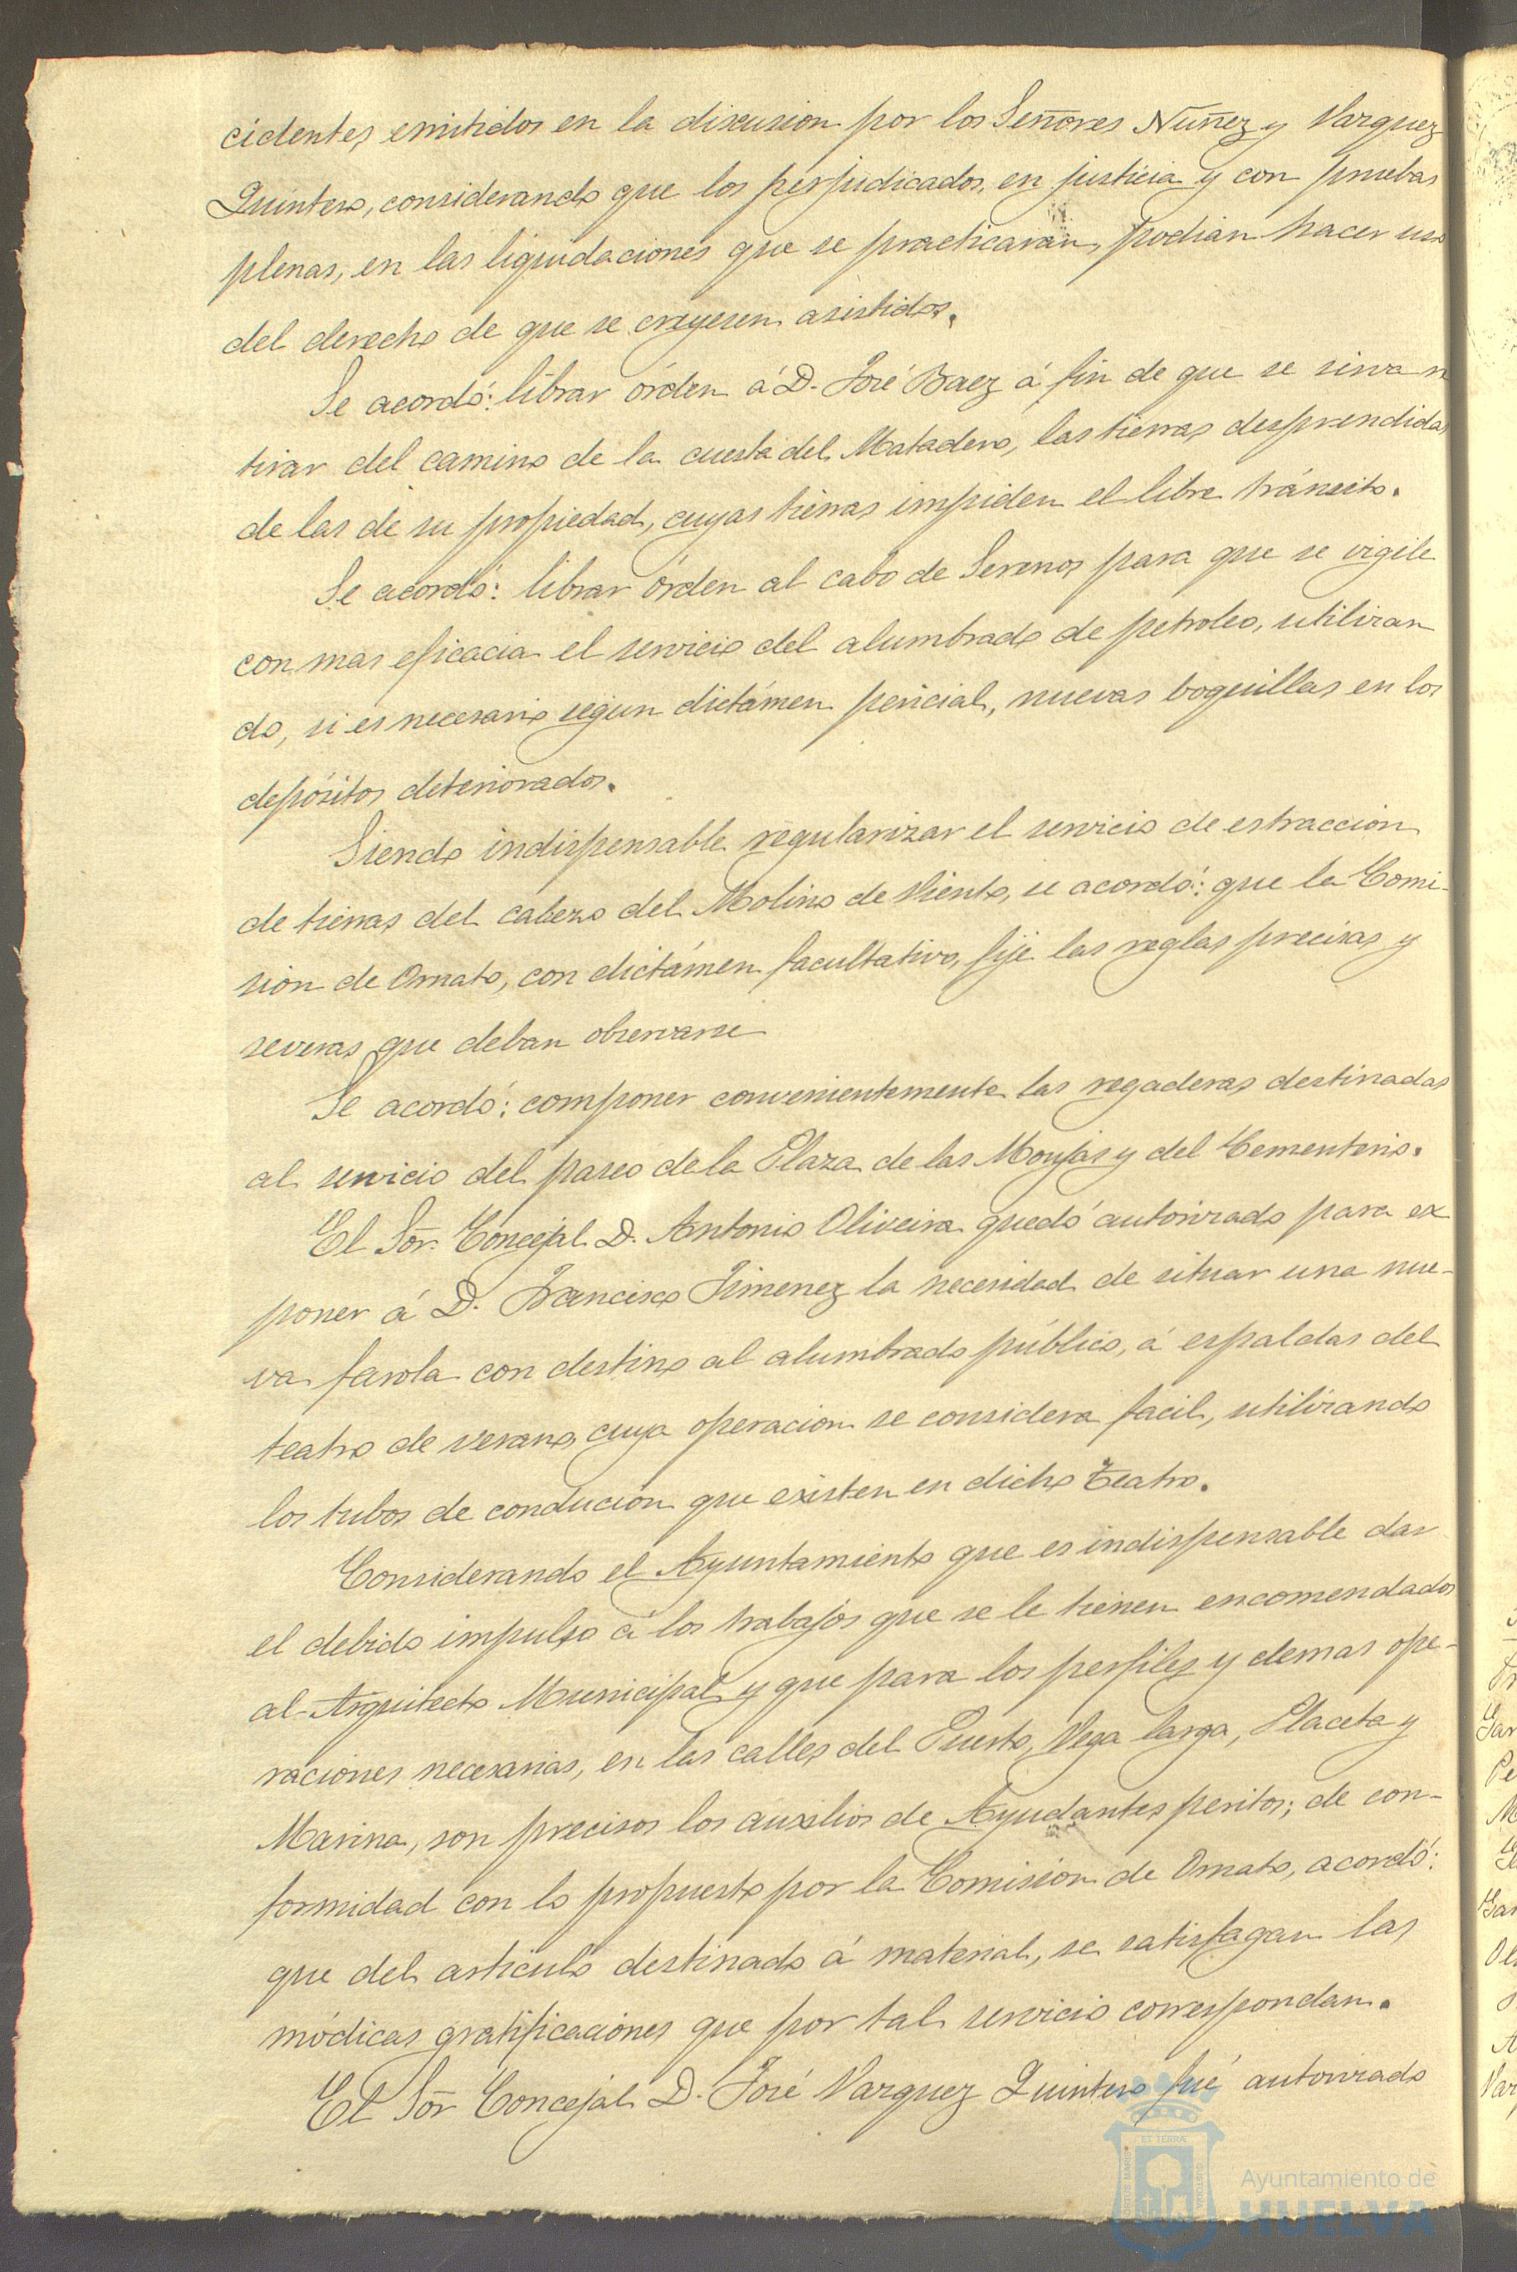 cidentes, emitidos en la discusion por los Señores Nuñez y Vazquez
Quintero, considerando que los perjudicados, en justicia y con pruebas
plenas, en las liquidaciones que se practicaran, podian hacer uso
del derecho de que se creyesen asistidos.
Se acordó: librar órden á D. José Baez á fin de que se sirva re
tirar del camino de la cuesta del Matadero, las tierras desprendidas
de las de su propiedad, cuyas tierras impiden el libre tránsito.
Se acordó: librar órden al cabo de Serenos para que se vigile
con mas eficacia el servicio del alumbrado de petroleo, utilizan
do, si es necesario segun dictámen pericial, nuevas boquillas en los
depósitos deteriorados.
Siendo indispensable regularizar el servicio de estraccion
de tierras del cabezo del Molino de Viento, se acordó: que la Comi-
sion de Ornato, con dictámen facultativo, fije las reglas precisas y
severas que deban observarse
Se acordó: componer convenientemente las regaderas, destinadas
al servicio del paseo de la Plaza de las Monjas y del Cementerio.
El Sor. Concejal D. Antonio Oliveira quedó autorizado para ex
poner á D. Francisco Jimenez la necesidad de situar una nue-
va farola con destino al alumbrado público, á espaldas del
teatro de verano, cuya operacion se considera facil, utilizando
los tubos de conducion que existen en dicho teatro.
Considerando el Ayuntamiento que es indispensable dar
el debido impulso á los trabajos que se le tienen encomendados
al Arquitecto Municipal y que para los perfiles y demas ope-
raciones necesarias, en las calles del Puerto, Vega larga, Placeta y
Marina, son precisos los auxilios de Ayudantes peritos; de con-
formidad con lo propuesto por la Comision de Ornato, acordó:
que del articulo destinado á material, se satisfagan las
módicas gratificaciones que por tal servicio correspondan.
El Sor Concejal D. José Vazquez Quintero fué autorizado
Ayuntamiento de
HUELVA